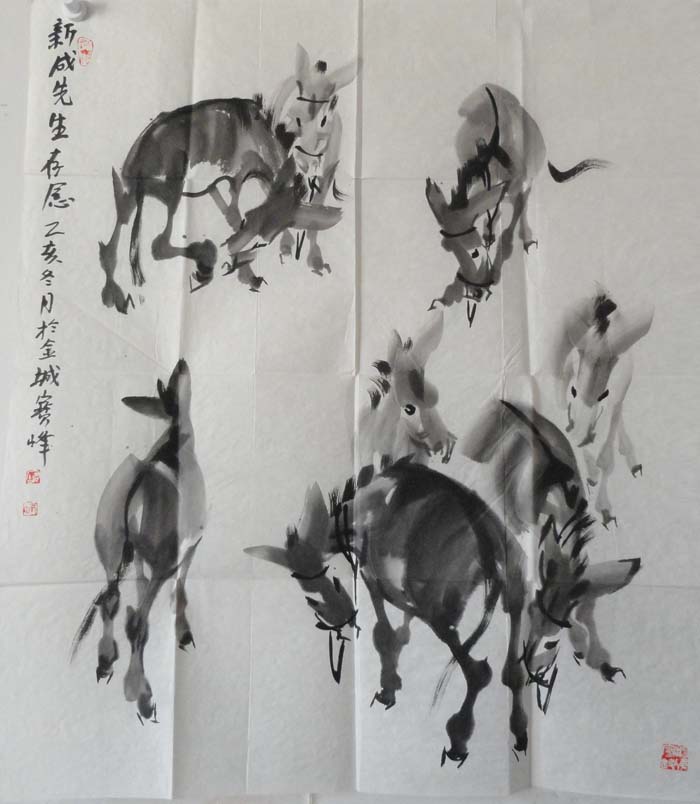 新成先生存念乙亥冬月於金城寶峰